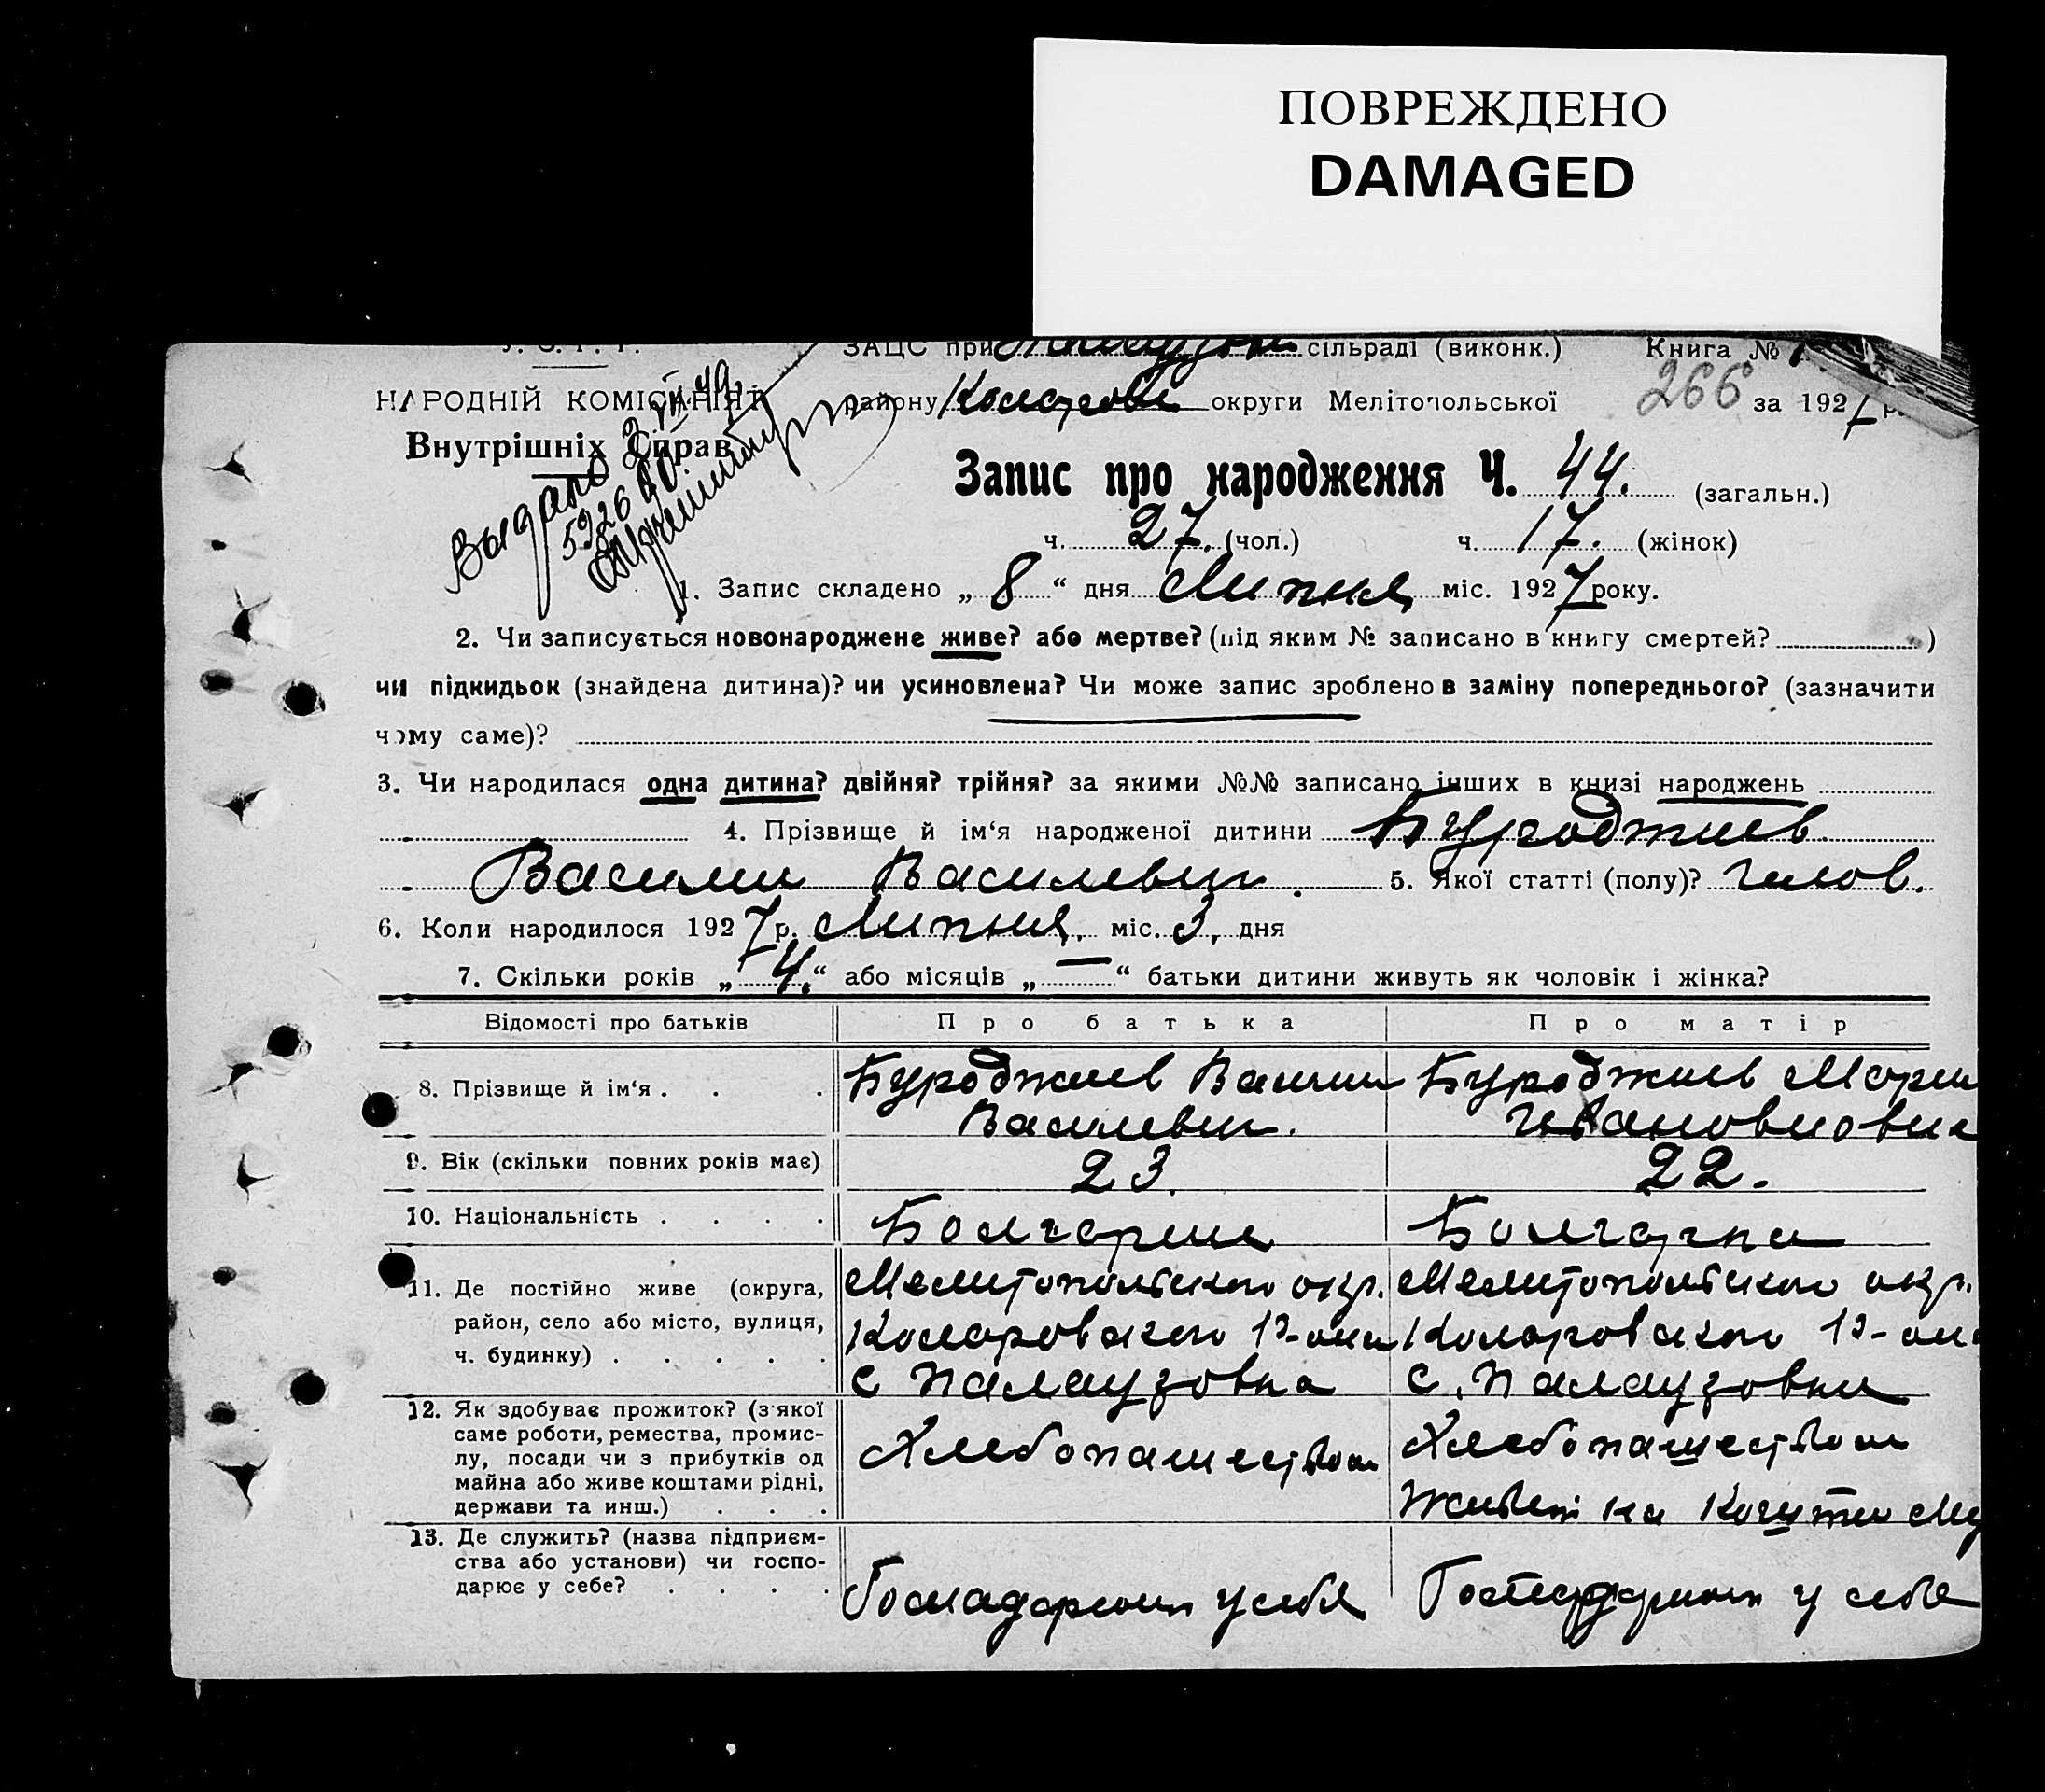 ПОВРЕЖДЕНО
DAMAGED
ЗАЦС при сільраді (виконк.) Книга №
НАРОДНІЙ КОМІСАРІЯТ району округи Мелітопольської 266 за 1927 р.
Внутрішніх Справ
Выдано
Запис про народження Ч. 44. (загальн.)
ч. 27. (чол.) ч. 17. (жінок)
1. Запис складено „ 8 “ дня Липня міс. 1927 року.
2. Чи записується новонароджене живе? або мертве? (під яким № записано в книгу смертей? )
чи підкидьок (знайдена дитина)? чи усиновлена? Чи може запис зроблено в заміну попереднього? (зазначити
чому саме)?
3. Чи народилася одна дитина? двійня? трійня? за якими №№ записано інших в книзі народжень
4. Прізвище й ім‘я народженої дитини Буроджиев
Василий Василевич. 5. Якої статті (полу)? Чилов.
6. Коли народилося 1927 р. Липня, міс. 3, дня
7. Скільки років „ 4. “ або місяців „ — “ батьки дитини живуть як чоловік і жінка?
Відомості про батьків Про батька Про матір
8. Прізвище й ім‘я . . . Буроджиев Василий Буроджиев Мария
Василевич. Ивановновна
9. Вік (скільки повних років має) 23. 22.
10. Національність . . . . Болгарин Болгарка
11. Де постійно живе (округа, Мелитопольского окр. Мелитопольского окр.
район, село або місто, вулиця, Коларовского р-она Коларовского р-она
ч. будинку) . . . . . с Палаузовка с. Палаузовка
12. Як здобуває прожиток? (з якої
саме роботи, ремества, промис- Хлебопашеством Хлебопашеством
лу, посади чи з прибутків од
майна або живе коштами рідні,
держави та инш.) . . . Живет на
13. Де служить? (назва підприєм-
ства або установи) чи госпо-
дарює у себе? . . . . у себя у себе